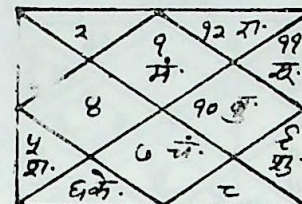 २
१
मं.
१२ रा.
११
४
१०
५
श.
७ चं.
शु.
६ के.
८